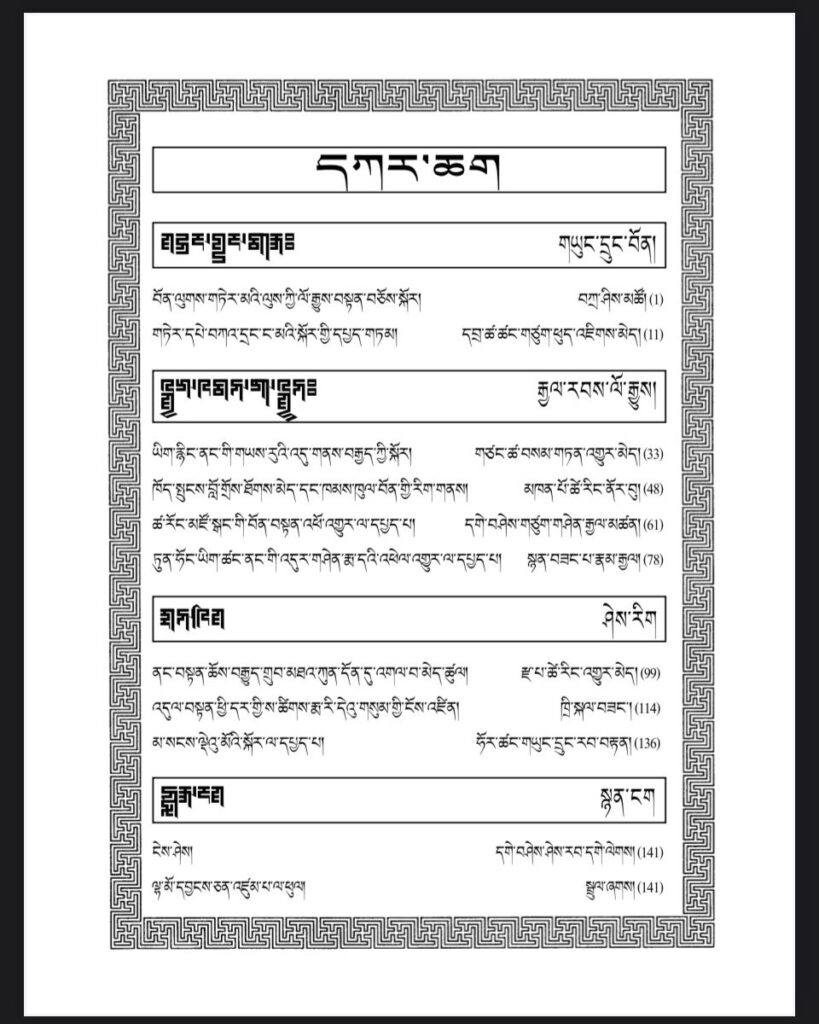 དཀར་ཆག
གཡུང་དྲུང་བོན།
བོན་ལུགས་གཏེར་མའི་ལུས་ཀྱི་ལོ་རྒྱུས་བསྟན་བཅོས་སྐོར། བཀྲ་ཤིས་མཚོ། (1)
གཏེར་དཔེ་བཀའ་དྲང་ང་མའི་སྐོར་གྱི་དཔྱད་གཏམ། དབྲ་ཚ་ཚང་གཙུག་ཕུད་འཇིགས་མེད། (11)
རྒྱལ་རབས་ལོ་རྒྱུས།
ཡིག་རྙིང་ནང་གི་གཡས་རུའི་འདུ་གནས་བརྒྱད་ཀྱི་སྐོར། གཙང་ཚ་བསམ་གཏན་འགྱུར་མེད། (33)
ཁོད་སྤུངས་བློ་གྲོས་ཐོགས་མེད་དང་ཁམས་ཁུལ་བོན་གྱི་རིག་གནས། མཁན་པོ་ཚེ་རིང་ནོར་བུ། (48)
ཚ་རོང་མཛོ་སྒང་གི་བོན་བསྟན་འཕོ་འགྱུར་ལ་དཔྱད་པ། དགེ་བཤེས་གཙུག་གཤེན་རྒྱལ་མཚན། (61)
ཏུན་ཧོང་ཡིག་ཚང་ནང་གི་འདུར་གཤེན་རྨ་དའི་འཕེལ་འགྱུར་ལ་དཔྱད་པ། སྙན་བཟང་པ་རྣམ་རྒྱལ། (78)
ཤེས་རིག
ནང་བསྟན་ཆོས་བརྒྱུད་གྲུབ་མཐའ་ཀུན་དོན་དུ་འགལ་བ་མེད་ཚུལ། རྫ་པ་ཚེ་རིང་འགྱུར་མེད། (99)
འདུལ་བསྟན་ཕྱི་དར་གྱི་ས་ཚིགས་རྨ་རི་དེའུ་གསུམ་གྱི་ངོས་འཛིན། ཁྲི་སྐལ་བཟང་། (114)
མ་སངས་ལྡེའུ་མོའི་སྐོར་ལ་དཔྱད་པ། ཧོར་ཚང་གཡུང་དྲུང་རབ་བརྟན། (136)
སྙན་ངག
ངེས་ཤེས། དགེ་བཤེས་ཤེས་རབ་དགེ་ལེགས། (141)
ལྷ་མོ་དབྱངས་ཅན་འཛུམ་པ་ལ་ཕུལ། སྦྲུལ་ཞགས། (141)